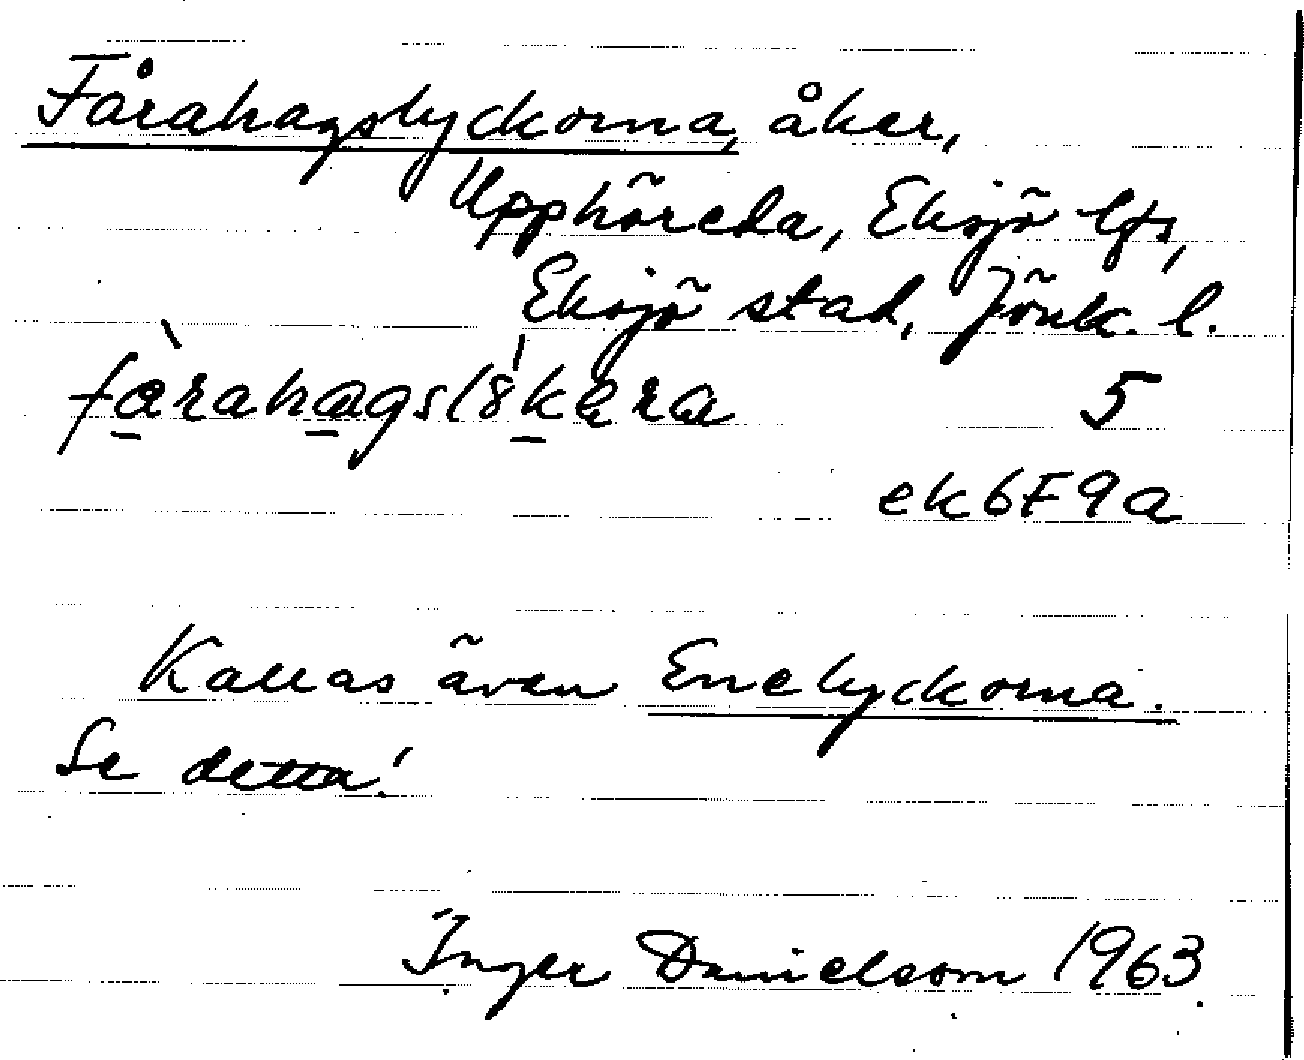 Fårahagslyckorna, åker,
Upphöreda, Eksjö lfs,
Eksjö stad, Jönk. l.
5
ek6F9a
Kallas även Enelyckorna.
Se detta!
Inger Danielsson 1963